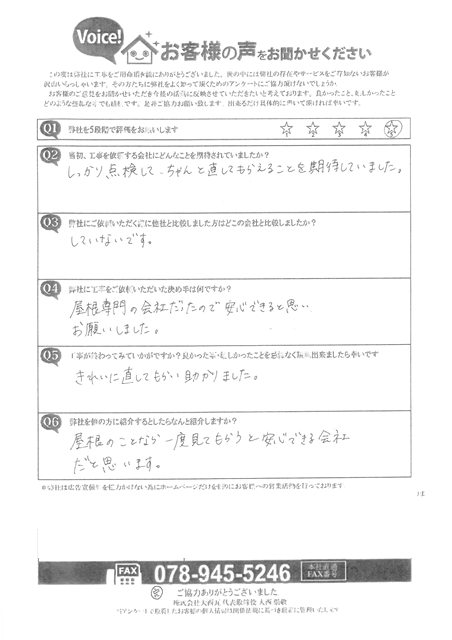 Voice!
お客様の声をお聞かせください
この度は弊社に工事をご用命頂き誠にありがとうございました。世の中には弊社の存在やサービスをご存知ないお客様が
沢山いらっしゃいます。その方たちに弊社をよく知って頂くためのアンケートにご協力頂けないでしょうか。
お客様のご意見をお聞かせいただき今後の活動に反映させていただきたいと考えております。良かったこと、もしかったこと
どのような些細なことでも結構です。是非ご協力お願い致します。出来るだけ具体的に書いて頂ければ幸いです。
Q1 弊社を5段階で評価をお願いします
Q2 最初、工事を依頼する会社にどんなことを期待されていましたか?
しっかり点検して、ちゃんと直してもらえることを期待していました。
Q3 弊社にご依頼いただく前に他社と比較しました方はどこの会社と比較しましたか?
していないです。
Q4 弊社に工事をご依頼いただいた決め手は何ですか?
屋根専門の会社だったので安心できると思い
お願いしました。
Q5 工事が終わってみていかがですか?良かった事・もしかったことを遠慮なく 出来ましたら幸いです
きれいに直してもらい助かりました。
Q6 弊社を他の方に紹介するとしたらなんと紹介しますか?
屋根のことなら一度見てもらうと安心できる会社
だと思います。
FAX 078-945-5246 本社直通
FAX番号
ご協力ありがとうございました
株式会社大西瓦 代表取締役 大西